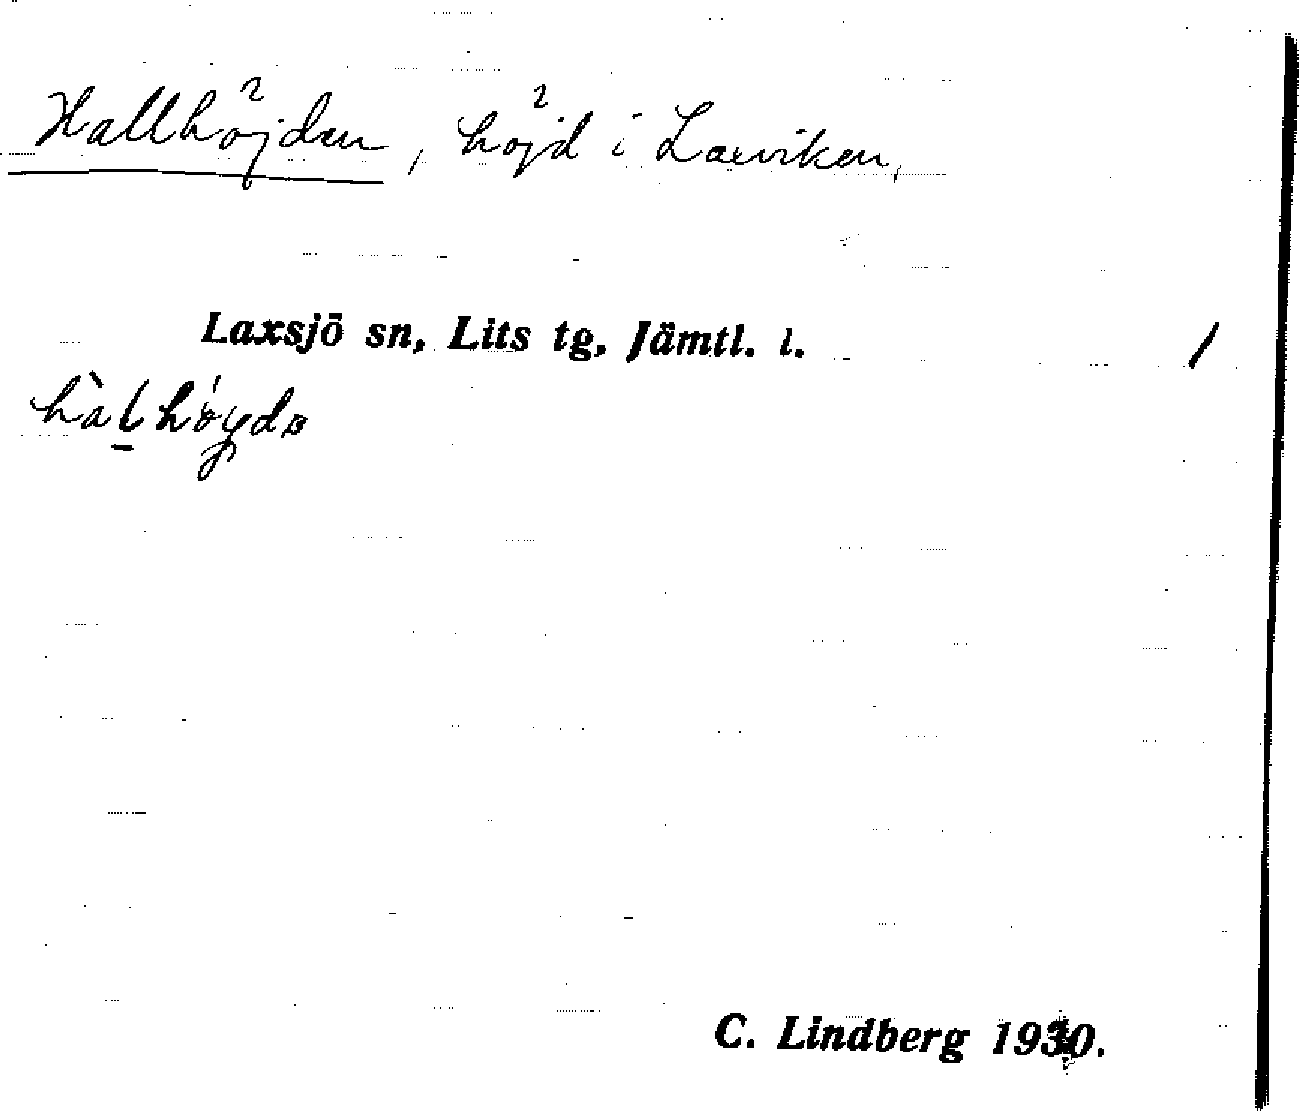 Hallhöjden, höjd i Laxviken,
Laxsjö sn, Lits tg, Jämtl. l.
/
C. Lindberg 1930.